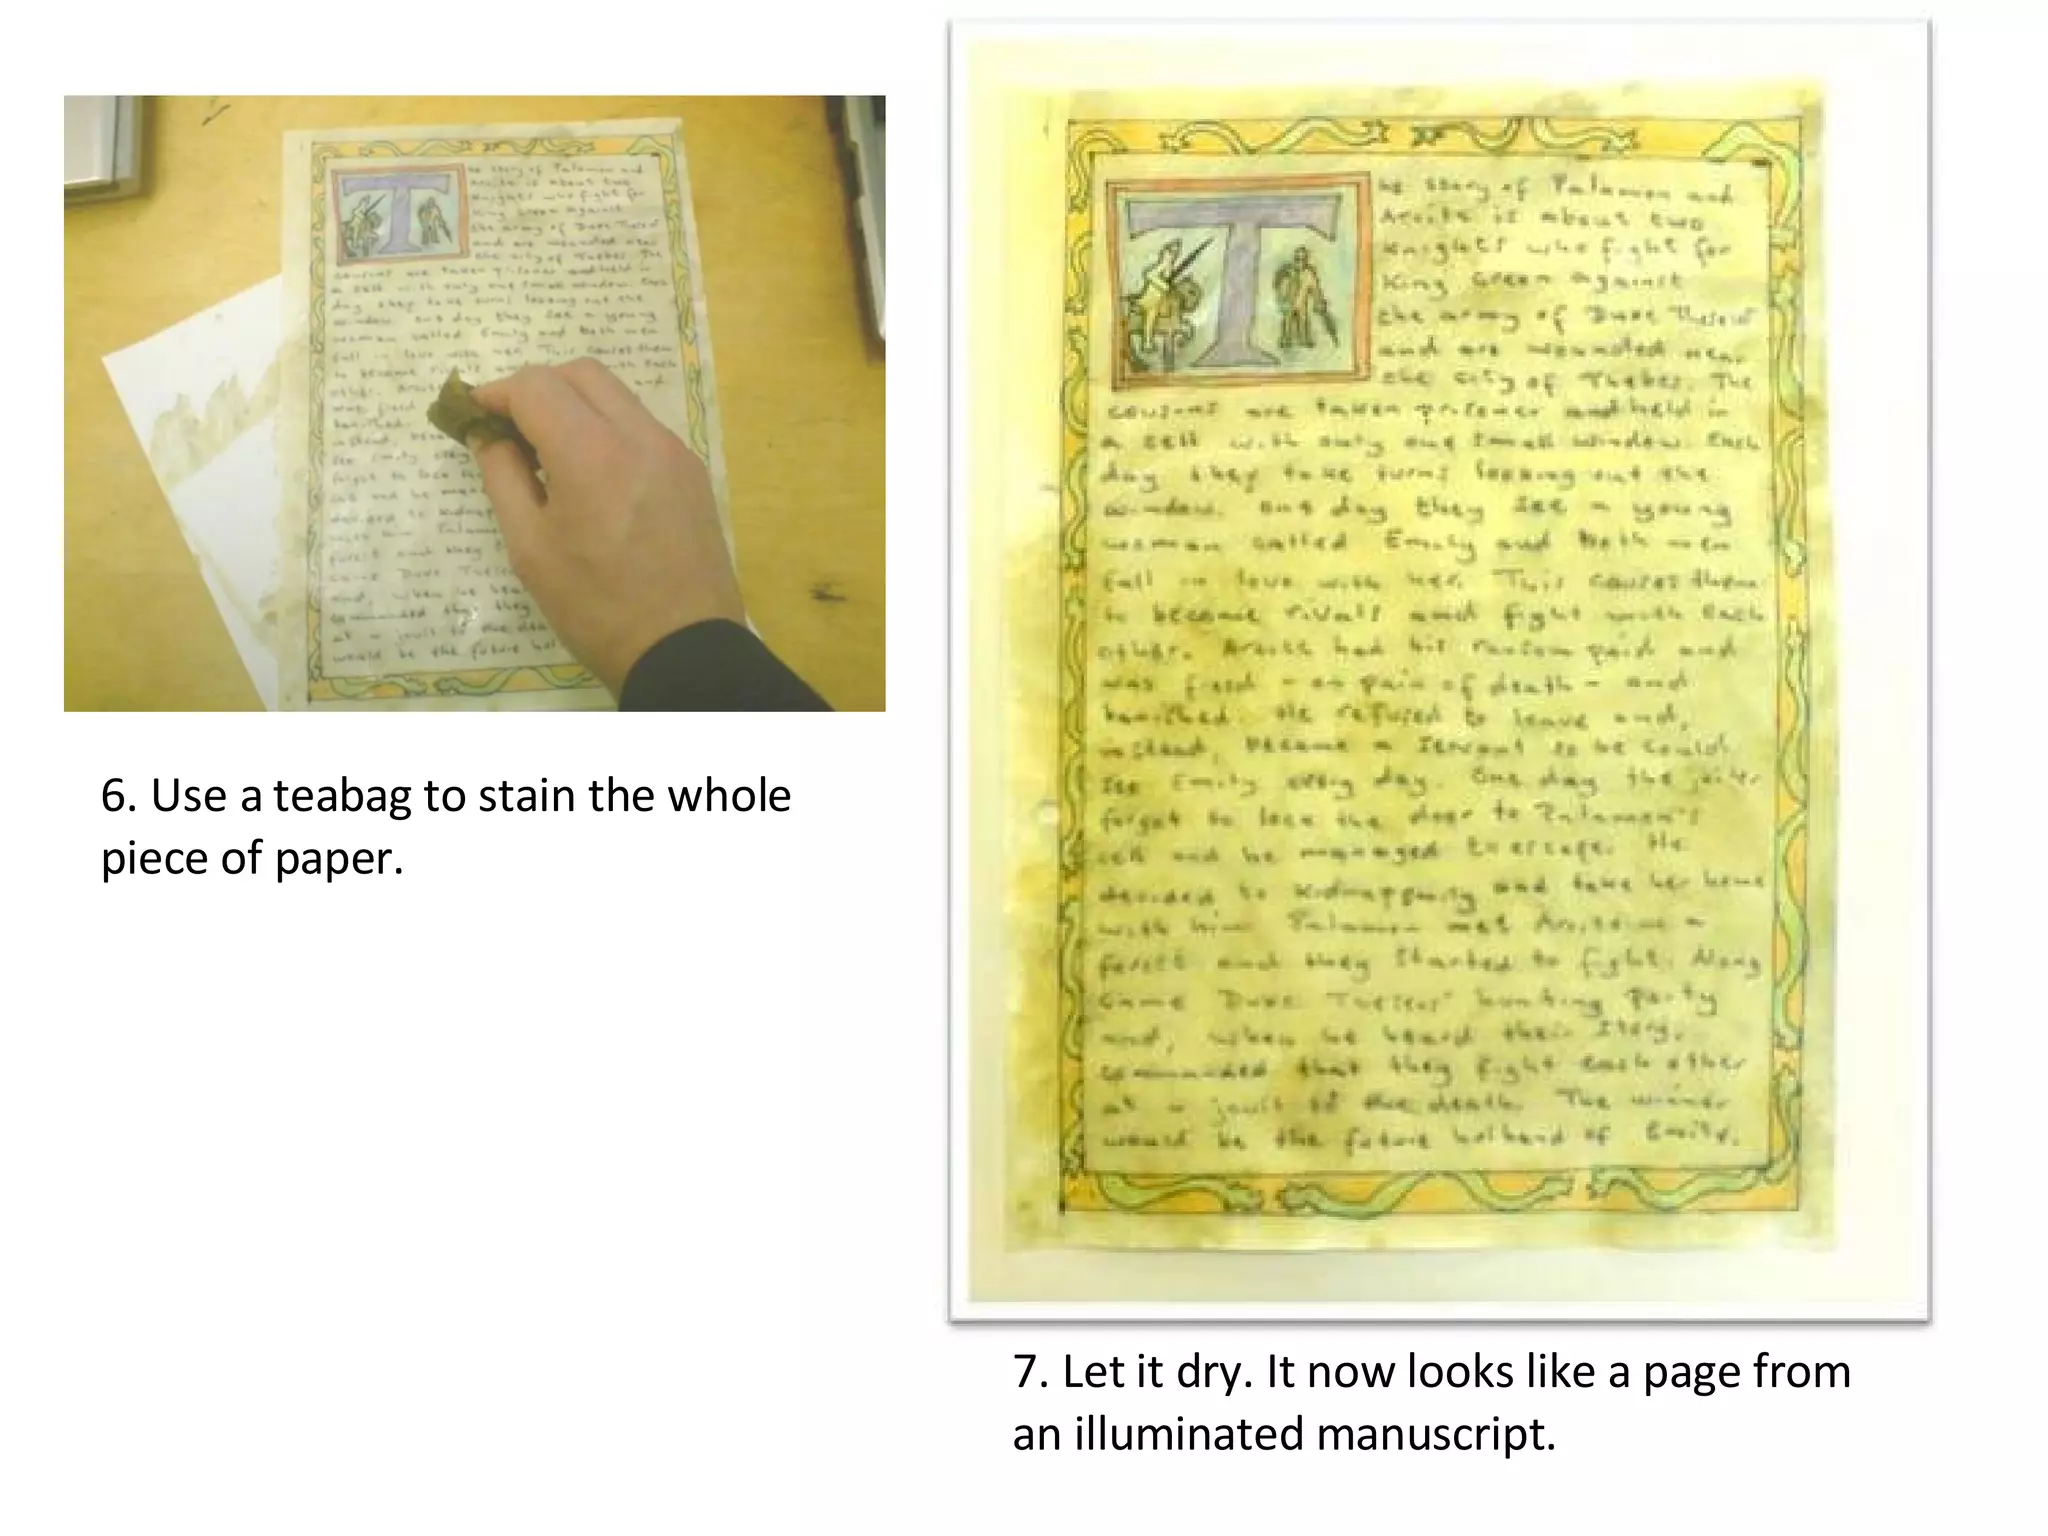 6. Use a teabag to stain the whole
piece of paper.
The story of Palamon and
Arcite is about two
knights who fight for
King Creon against
the army of Duke Theseus
and are wounded near
the city of Thebes. The
cousins are taken prisoner and held in
a cell with only one small window. Each
day they take turns looking out the
window. One day they see a young
woman called Emily and both men
fall in love with her. This causes them
to become rivals and fight with each
other. Arcite had his ransom paid and
was - on pain of death - and
banished. He refused to leave and,
instead, became a servant so he could
see Emily every day. One day the jailer
forgot to lock the door to Palamon's
cell and he managed to escape. He
decided to kidnap Emily and take her home
with him. Palamon met Arcite in a
forest and they started to fight. Along
came Duke Theseus' hunting party
and, when he heard their story,
commanded that they fight each other
at a joust to the death. The winner
would be the future husband of Emily.
7. Let it dry. It now looks like a page from
an illuminated manuscript.